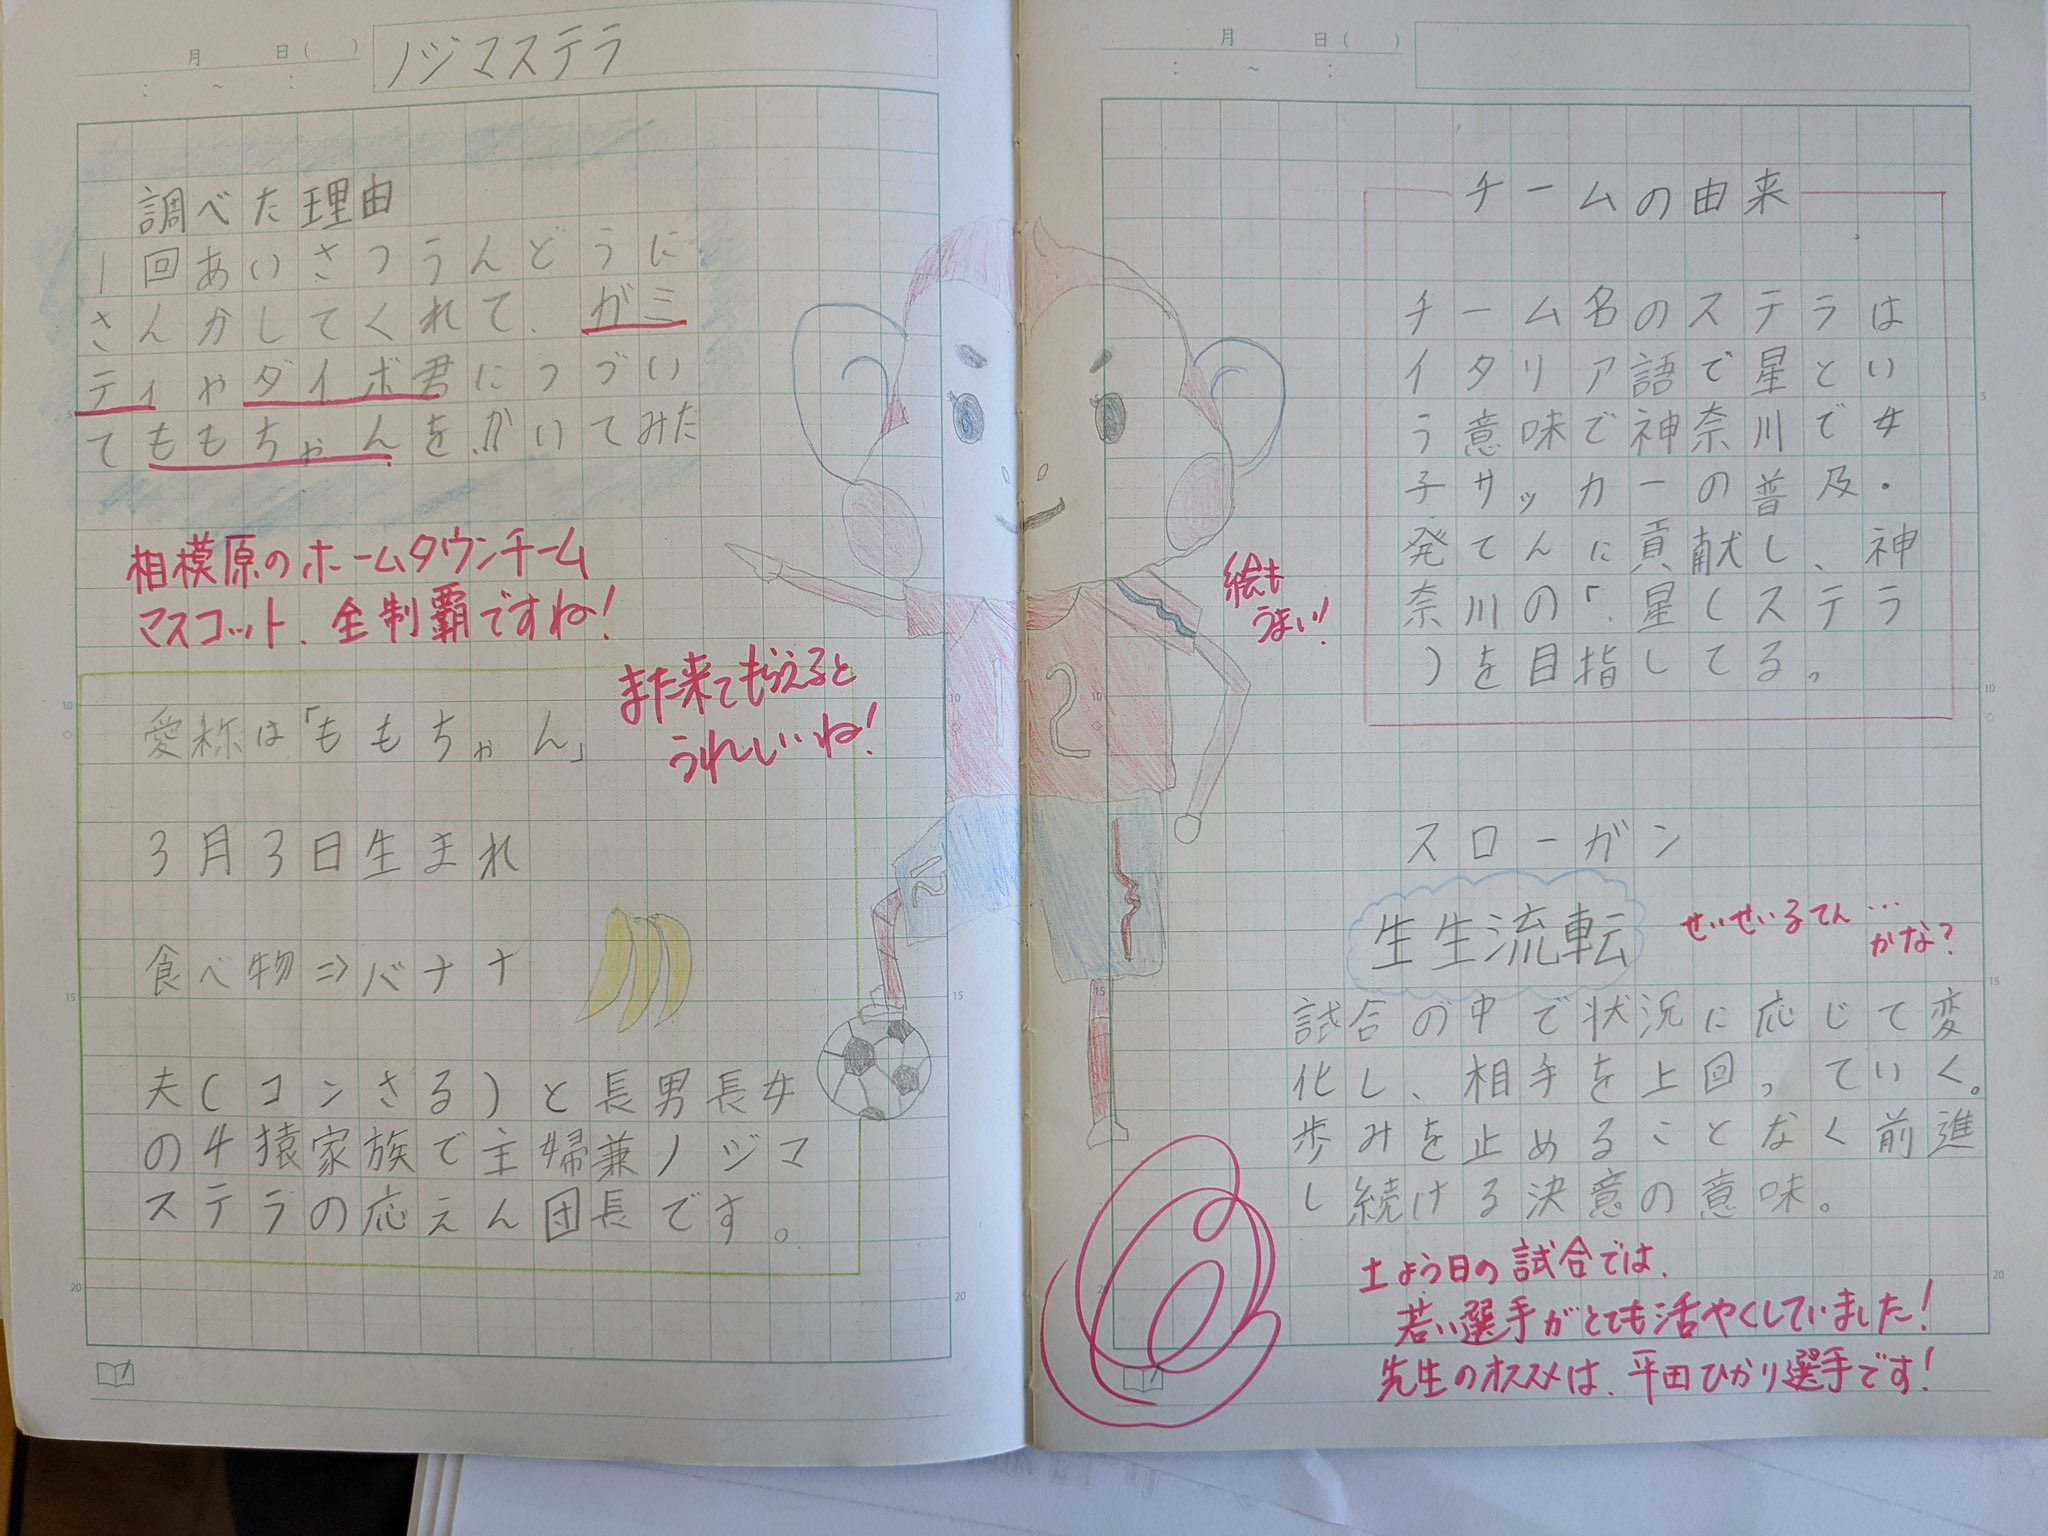 月 日( )
: ~ :
ノジマステラ
調べた理由
1回あいさつうんどうに
さんかしてくれて、ガミ
ティやダイボ君につづい
てももちゃんをかいてみた
相模原のホームタウンチーム
マスコット、全制覇ですね!
また来てもらえると
うれしいね!
愛称は「ももちゃん」
3月3日生まれ
食べ物⇒バナナ
夫(コンさる)と長男長女
の4猿家族で主婦兼ノジマ
ステラの応えん団長です。
5
10
15
20
10
15
20
12
月 日( )
: ~ :
チームの由来
チーム名のステラは
イタリア語で星とい
う意味で神奈川で女
子サッカーの普及・
発てんに貢献し、神
奈川の「星(ステラ
)を目指してる。
絵も
うまい!
スローガン
生生流転
せいせいるてん…
かな?
試合の中で状況に応じて変
化し、相手を上回っていく。
歩みを止めることなく前進
し続ける決意の意味。
土よう日の試合では、
若い選手がとても活やくしていました!
先生のオススメは、平田ひかり選手です!
5
10
15
20
10
15